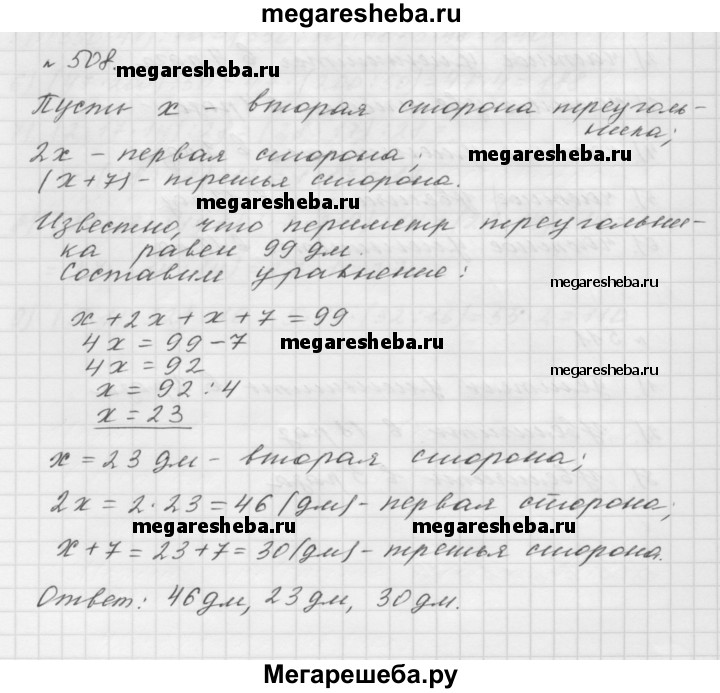 megaresheba.ru
№ 508.
megaresheba.ru
Пусть x - вторая сторона треуголь-
ника;
2x - первая сторона;
megaresheba.ru
(x+7) - третья сторона.
megaresheba.ru
Известно, что периметр треугольни-
ка равен 99 дм.
Составим уравнение:
megaresheba.ru
x + 2x + x + 7 = 99
4x = 99 - 7
megaresheba.ru
4x = 92
x = 92 : 4
x = 23
x = 23 дм - вторая сторона;
2x = 2 · 23 = 46 (дм) - первая сторона;
megaresheba.ru
megaresheba.ru
x + 7 = 23 + 7 = 30 (дм) - третья сторона.
Ответ: 46 дм, 23 дм, 30 дм.
Мегарешеба.ру